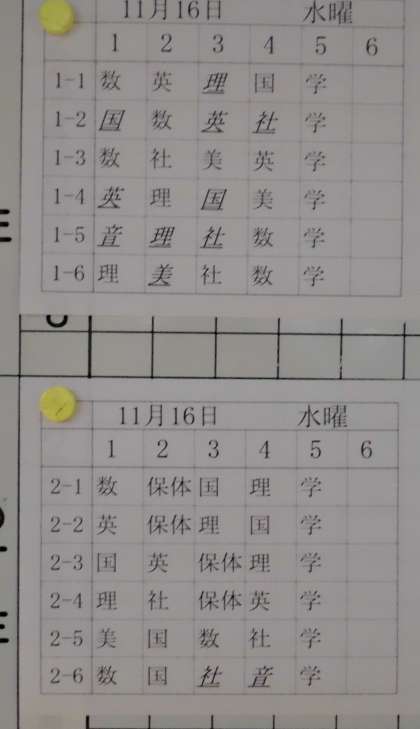 11月16日 水曜
1 2 3 4 5 6
1-1 数 英 理 国 学
1-2 国 数 英 社 学
1-3 数 社 美 英 学
1-4 英 理 国 美 学
1-5 音 理 社 数 学
1-6 理 美 社 数 学
11月16日 水曜
1 2 3 4 5 6
2-1 数 保体 国 理 学
2-2 英 保体 理 国 学
2-3 国 英 保体 理 学
2-4 理 社 保体 英 学
2-5 美 国 数 社 学
2-6 数 国 社 音 学